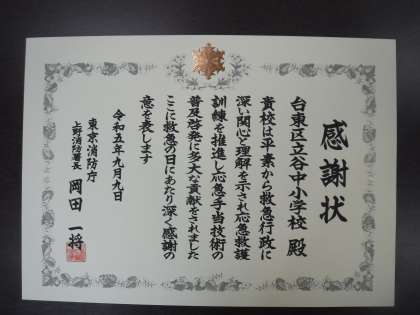 感謝状
台東区立谷中小学校 殿
貴校は平素から救急行政に
深い関心と理解を示され応急救護
訓練を推進し応急手当技術の
普及啓発に多大な貢献をされました
ここに救急の日にあたり深く感謝の
意を表します
令和五年九月九日
東京消防庁
上野消防署長 岡田 一将